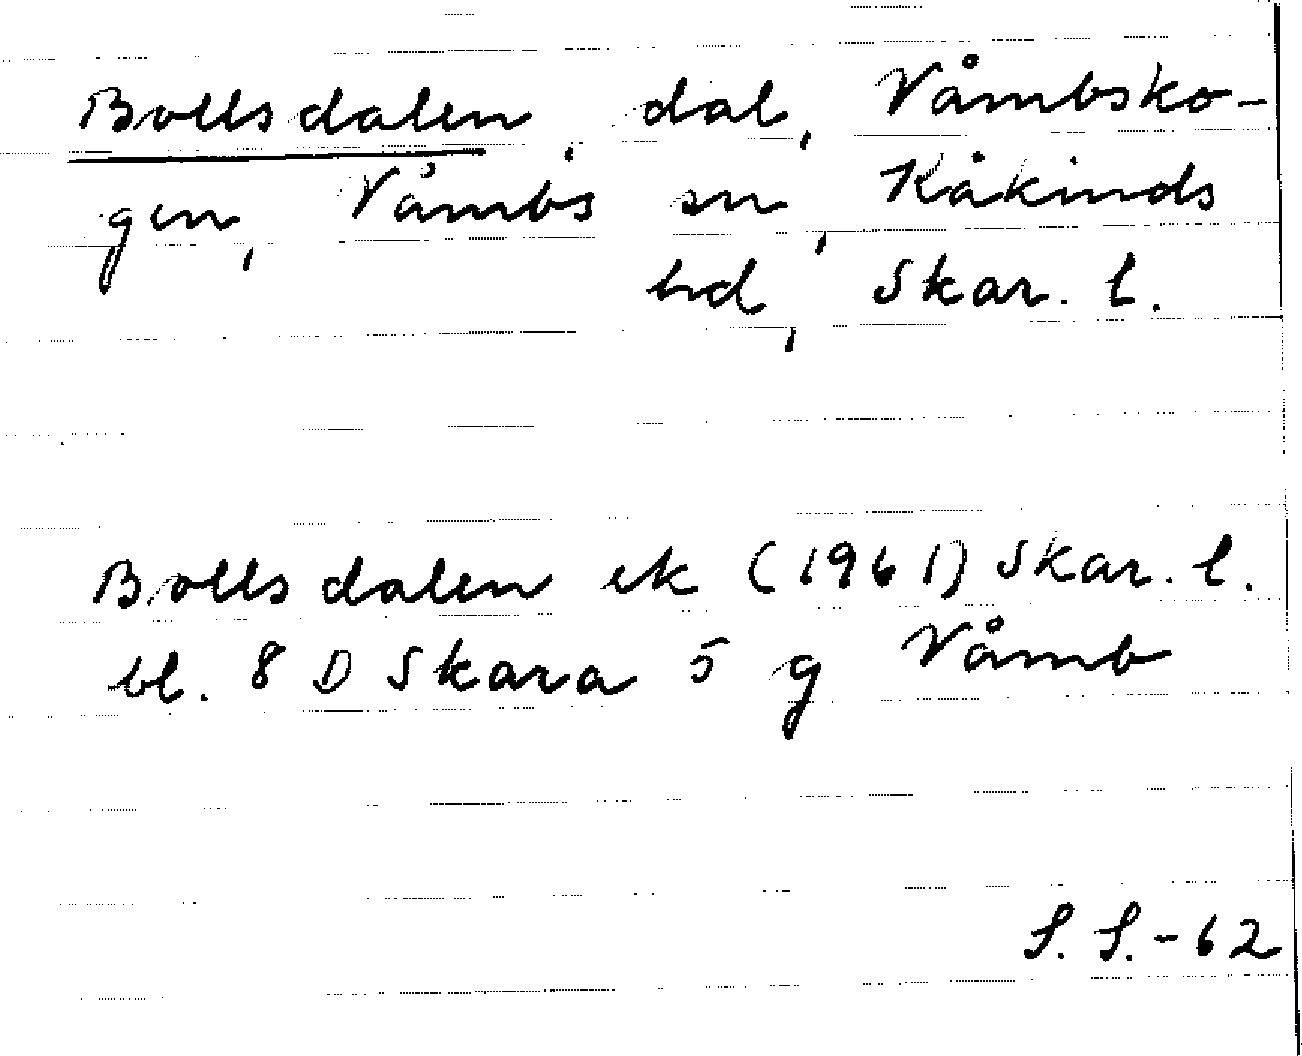 Bollsdalen, dal, Våmbsko-
gen, Våmbs sn, Kåkinds
hd, Skar. l.
Bollsdalen ek (1961) Skar. l.
bl. 8 D Skara 5 g Våmb
S. S. -62